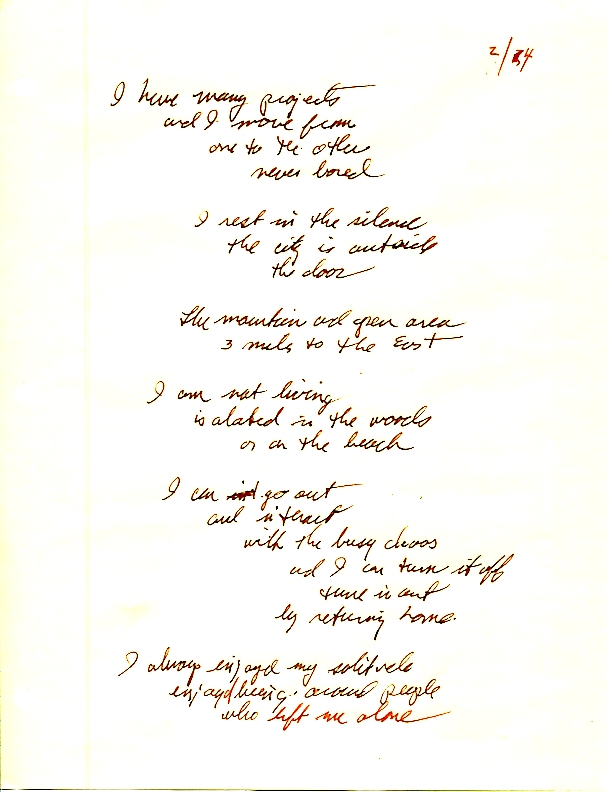 2/34
I have many projects
and I move from
one to the other
never bored
I rest in the silence
the city is outside
the door
The mountain and open area
3 miles to the East
I am not living
isolated in the woods
or on the beach
I can go out
and interact
with the busy chaos
and I can turn it off
tune it out
by returning home.
I always enjoyed my solitude
enjoyed being around people
who left me alone